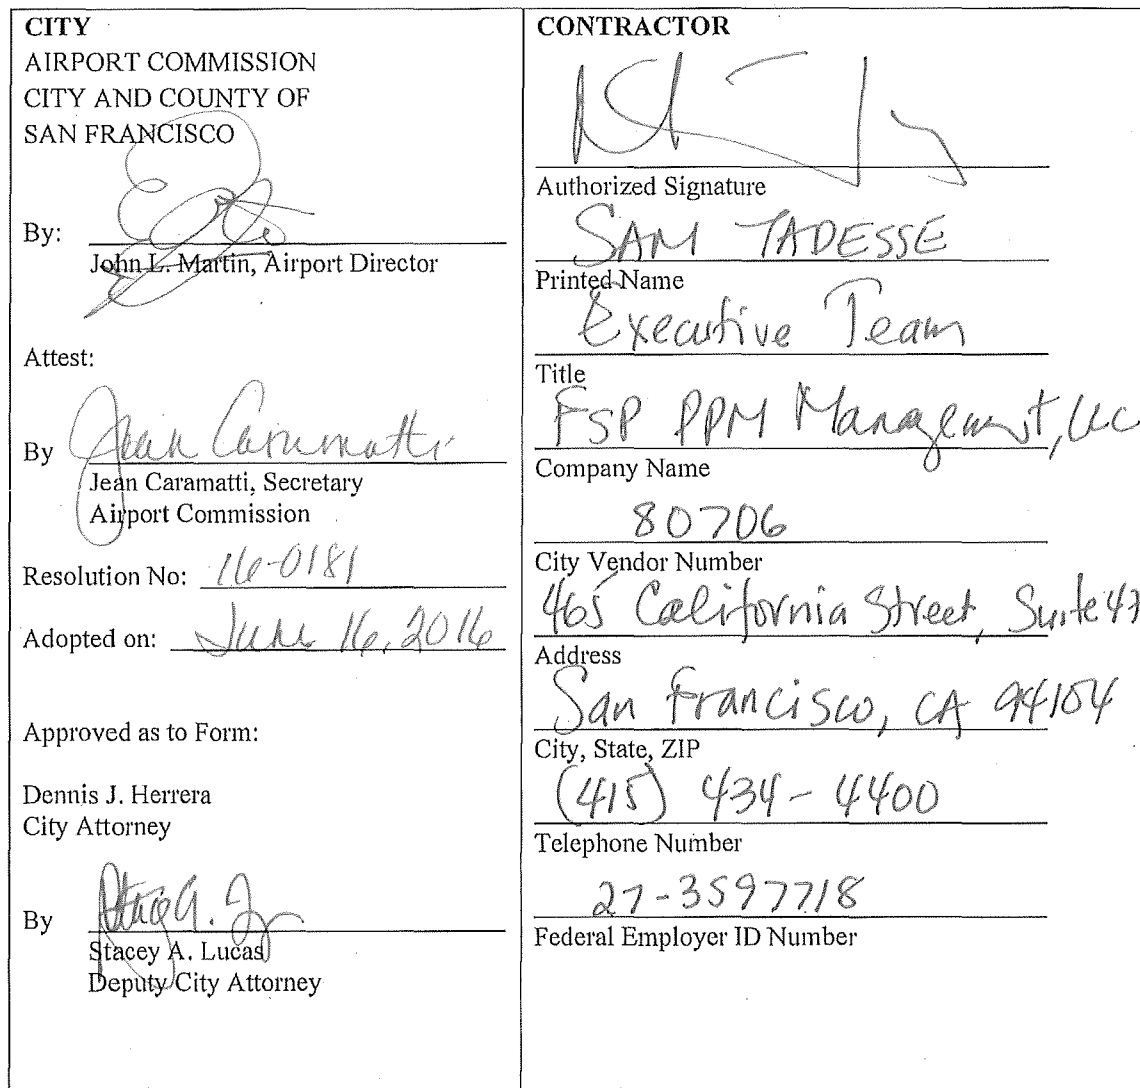 CITY
AIRPORT COMMISSION
CITY AND COUNTY OF
SAN FRANCISCO
By:
John L. Martin, Airport Director
Attest:
By Jean Caramatti
Jean Caramatti, Secretary
Airport Commission
Resolution No: 16-0181
Adopted on: June 16, 2016
Approved as to Form:
Dennis J. Herrera
City Attorney
By
Stacey A. Lucas
Deputy City Attorney
CONTRACTOR
Authorized Signature
SAM TADESSE
Printed Name
Executive Team
Title
FSP PPM Management, LLC
Company Name
80706
City Vendor Number
465 California Street, Suite 47
Address
San Francisco, CA 94104
City, State, ZIP
(415) 434-4400
Telephone Number
27-3597718
Federal Employer ID Number